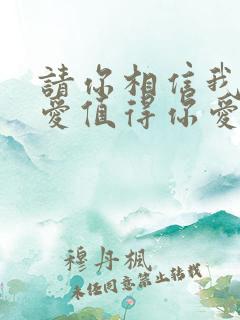 請你相信我
愛值得你愛
穆丹楓
未經同意禁止轉載